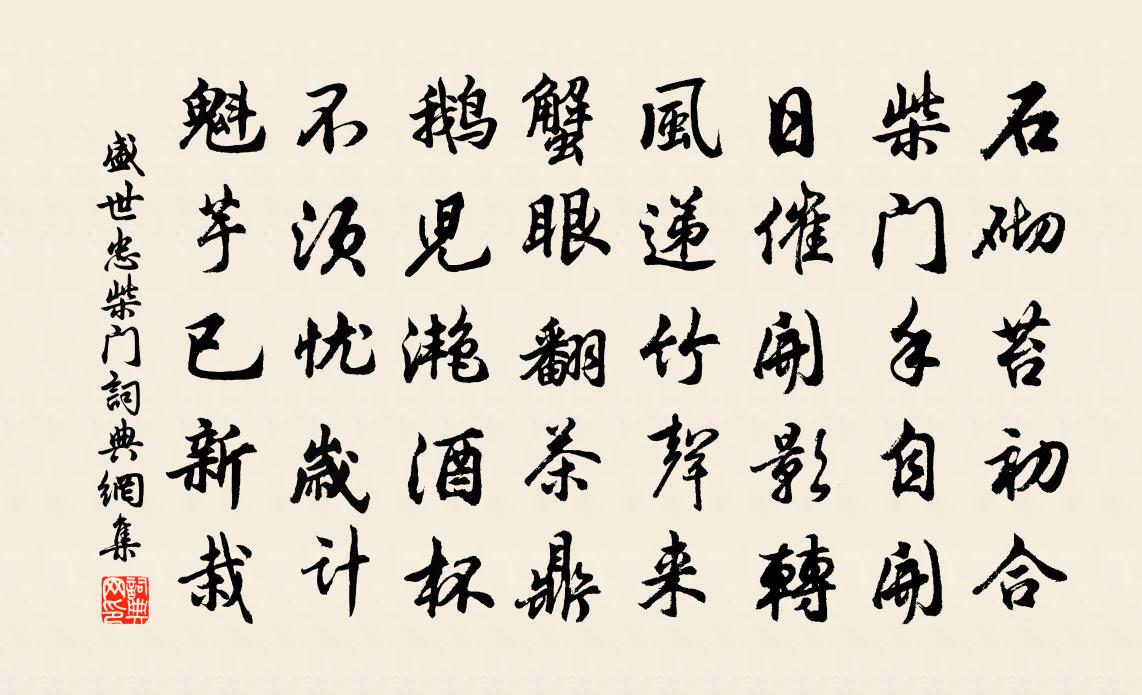 石砌苔初合
柴门手自開
日催開影轉
風递竹聲来
蟹眼翻茶鼎
鵝兒滟酒杯
不须忧歲计
魁芋已新栽
盛世忠柴门詞典網集
詞典网印